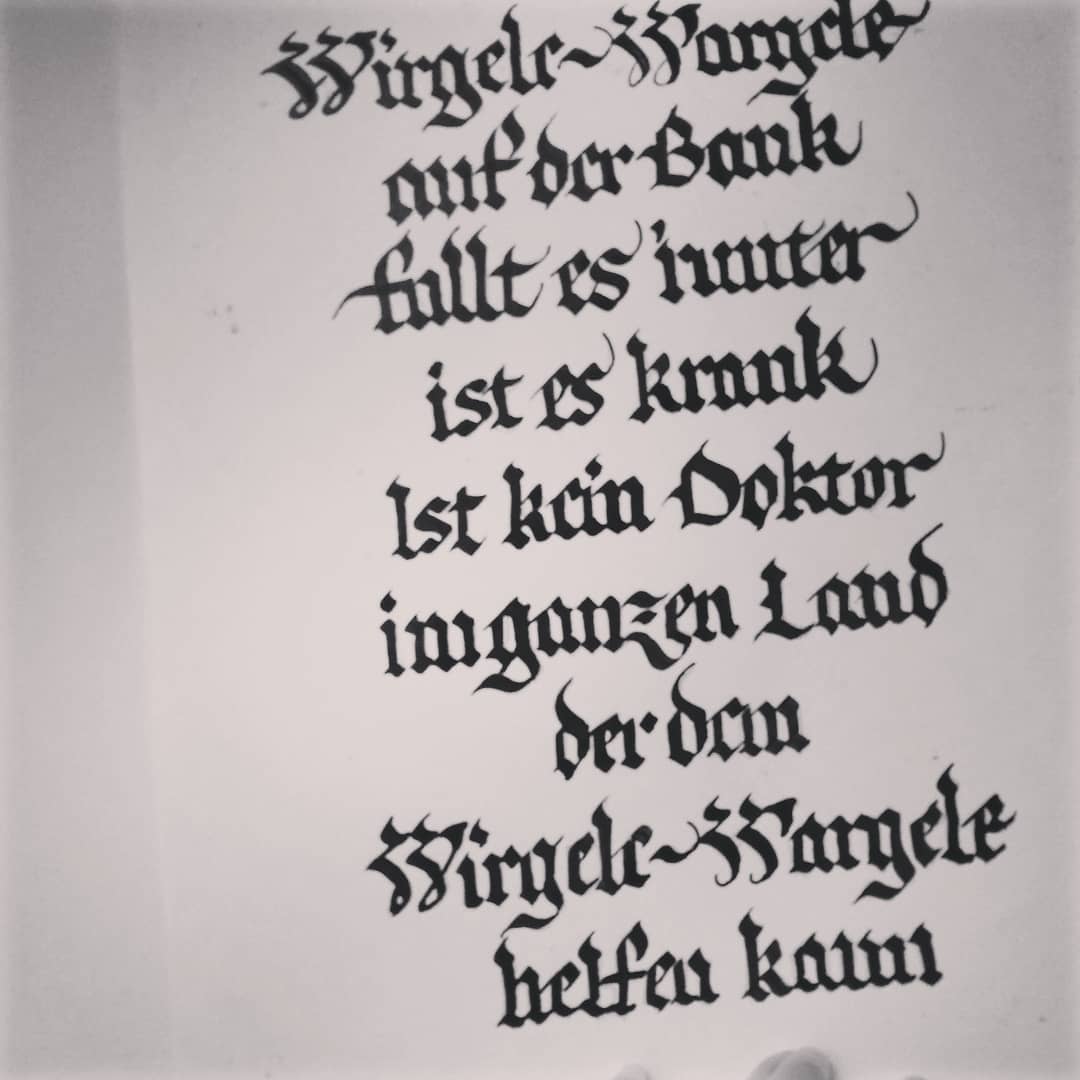 Wirgele~Wargele
auf der Bank
fallt es 'nunter
ist es krank
Ist kein Doktor
im ganzen Land
der dem
Wirgele~Wargele
helfen kann